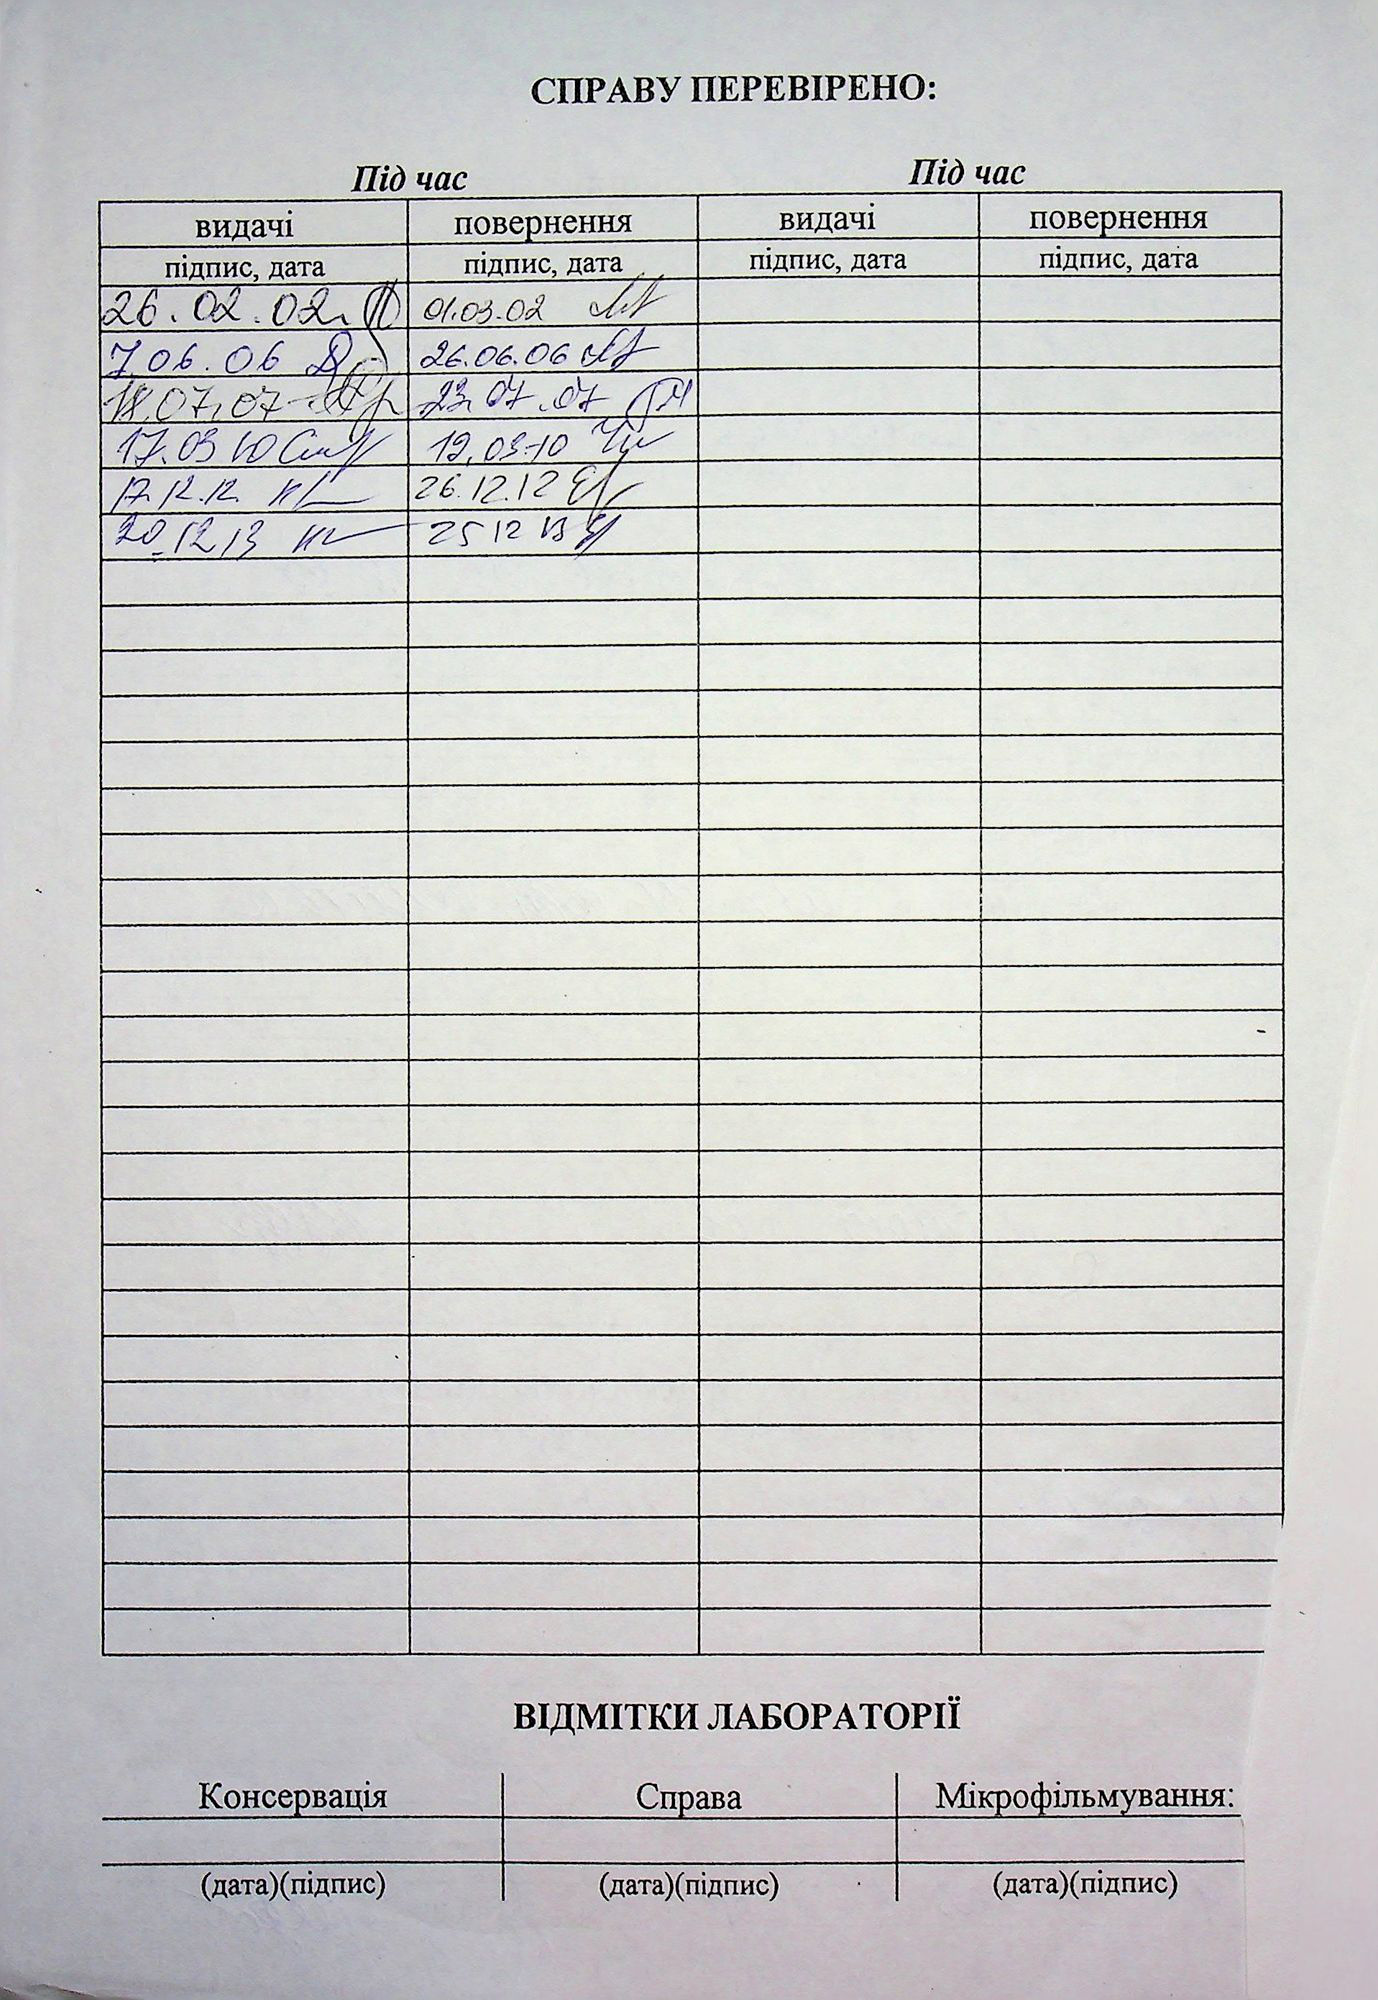 СПРАВУ ПЕРЕВІРЕНО:
Під час Під час
видачі повернення видачі повернення
підпис, дата підпис, дата підпис, дата підпис, дата
26.02.02 01.03.02
7.06.06 26.06.06
18.07.07 23.07.07
17.03 10 19.03.10
17.12.12. 26.12.12
20.12 13 25 12 13
ВІДМІТКИ ЛАБОРАТОРІЇ
Консервація Справа Мікрофільмування:
(дата)(підпис) (дата)(підпис) (дата)(підпис)